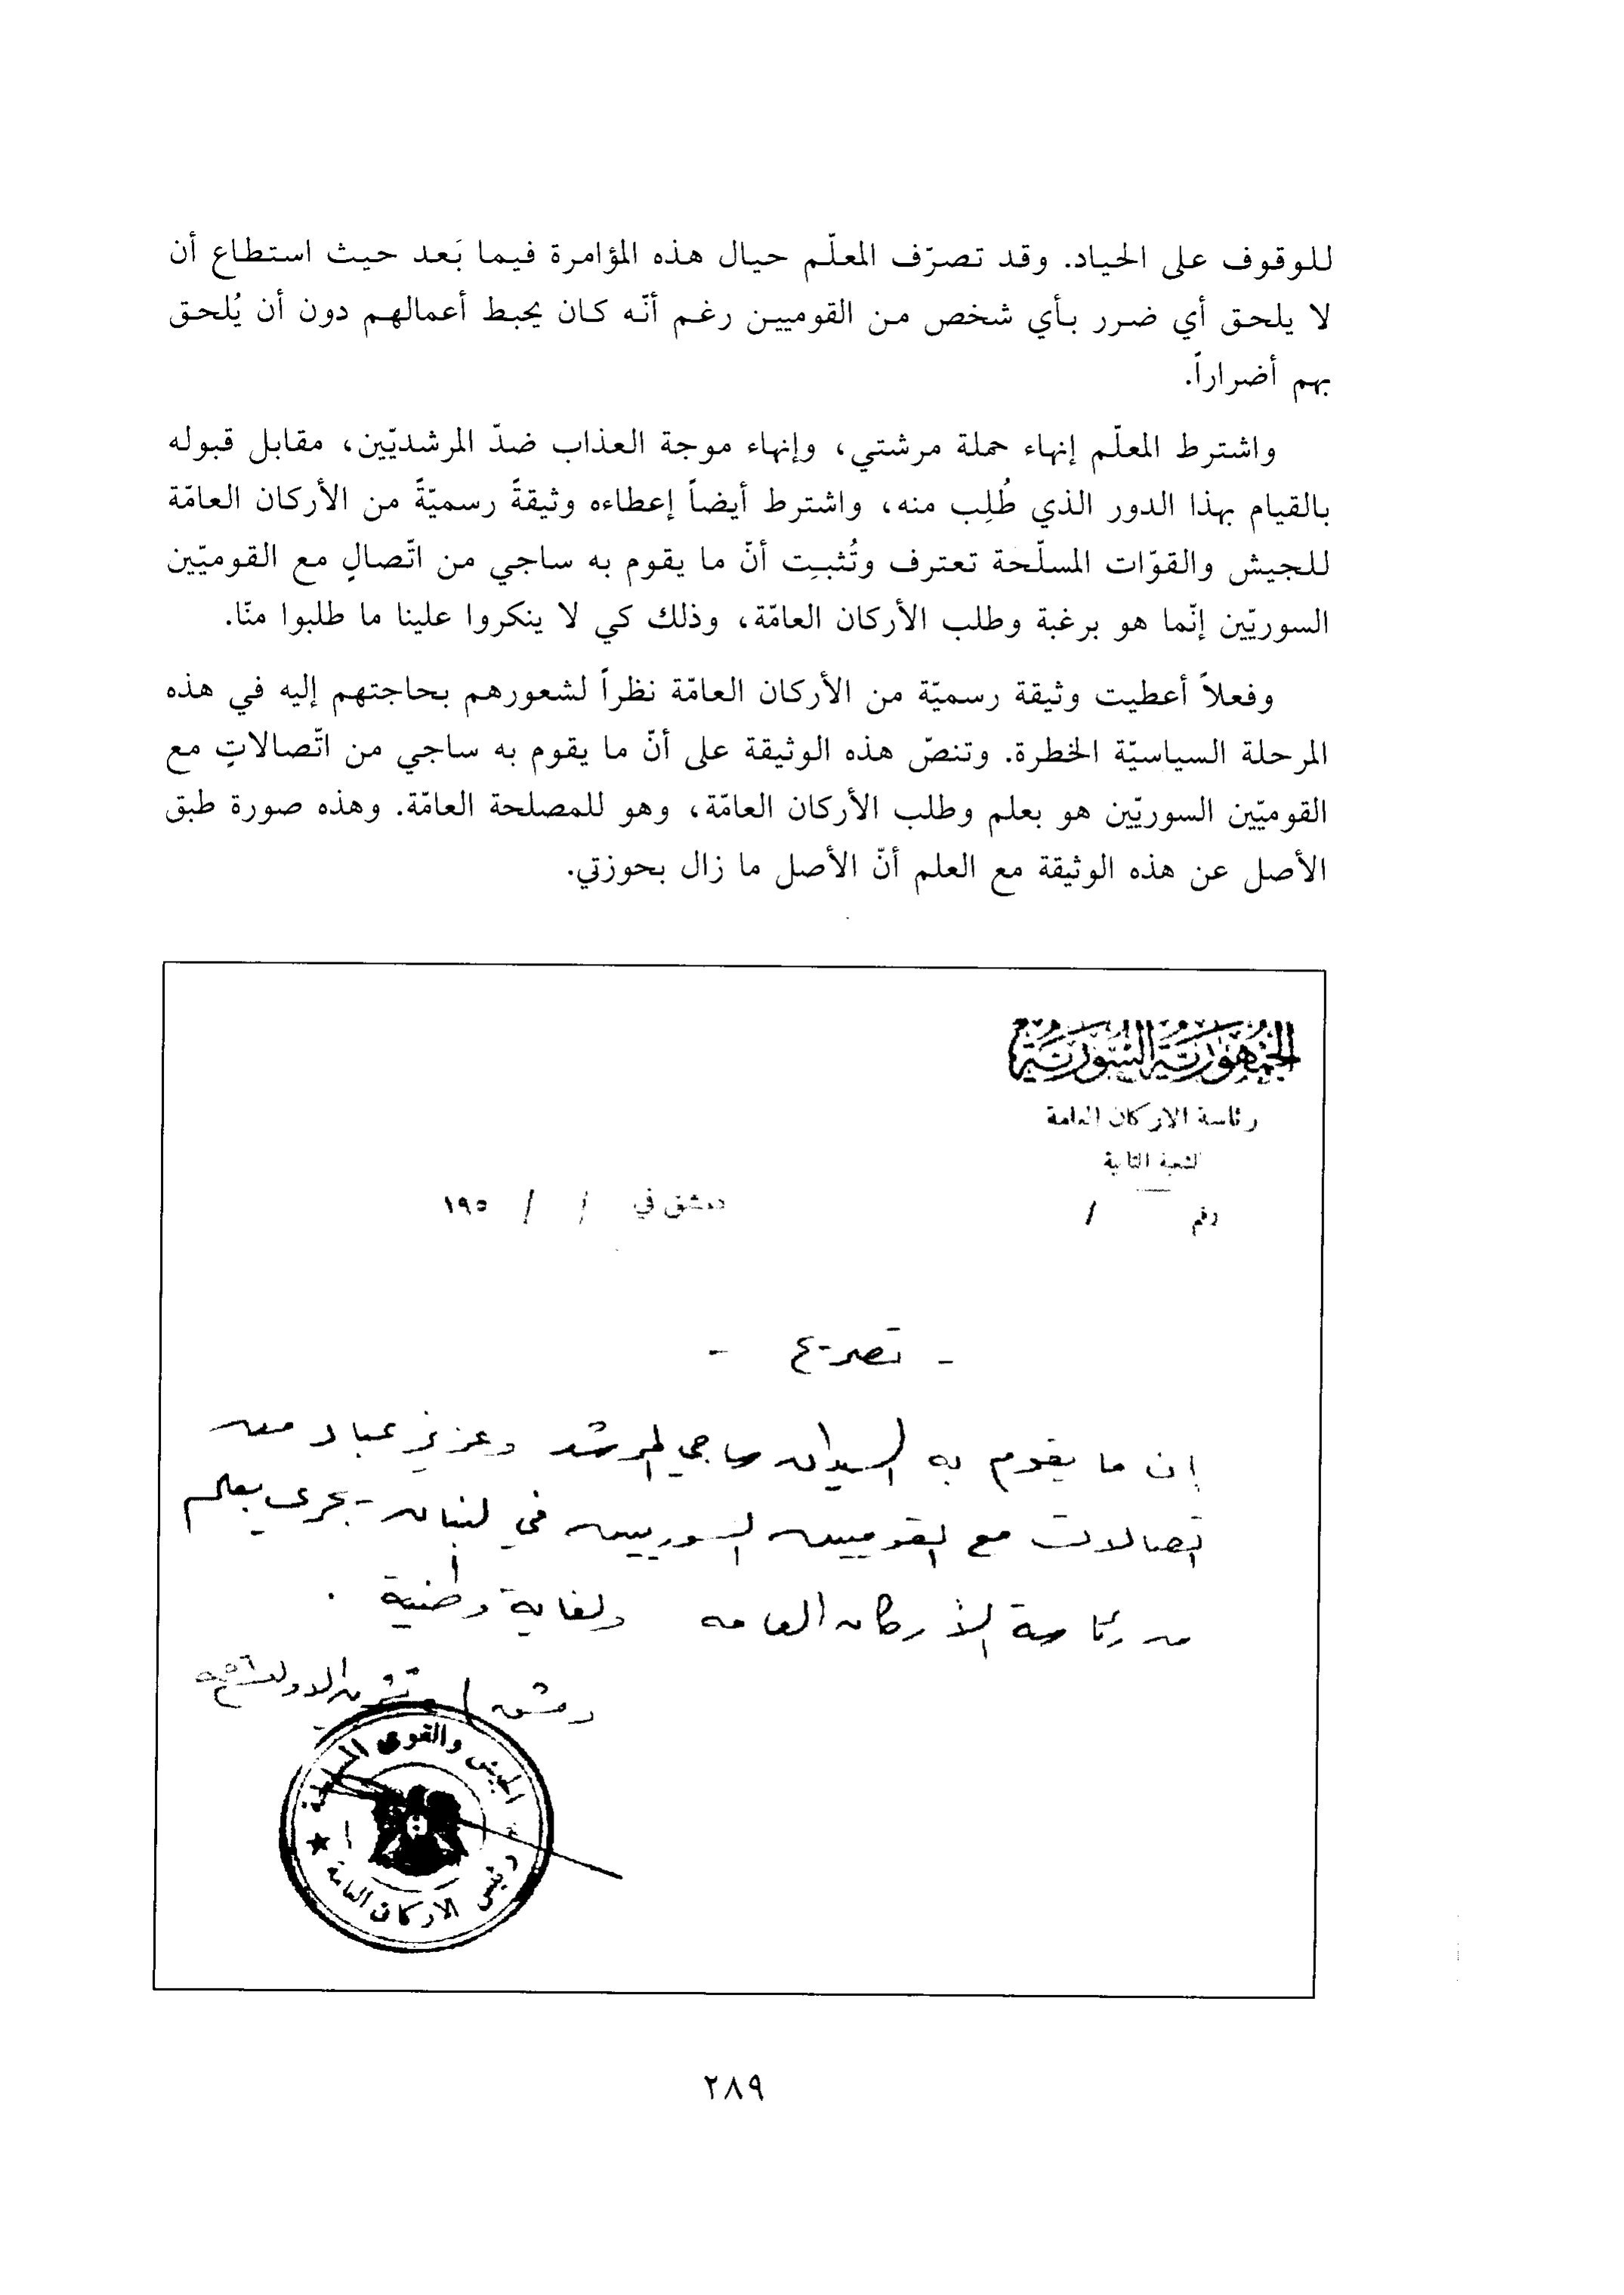 للوقوف على الحياد. وقد تصرّف المعلّم حيال هذه المؤامرة فيما بَعد حيث استطاع أن
لا يلحق أي ضرر بأي شخص من القوميين رغم أنّه كان يحبط أعمالهم دون أن يُلحق
بهم أضراراً.
واشترط المعلّم إنهاء حملة مرشتي، وإنهاء موجة العذاب ضدّ المرشديّين، مقابل قبوله
بالقيام بهذا الدور الذي طُلِب منه، واشترط أيضاً إعطاءه وثيقةً رسميّةً من الأركان العامّة
للجيش والقوّات المسلّحة تعترف وتُثبِت أنّ ما يقوم به ساجي من اتّصالٍ مع القوميّين
السوريّين إنّما هو برغبة وطلب الأركان العامّة، وذلك كي لا ينكروا علينا ما طلبوا منّا.
وفعلاً أعطيت وثيقة رسميّة من الأركان العامّة نظراً لشعورهم بحاجتهم إليه في هذه
المرحلة السياسيّة الخطرة. وتنصّ هذه الوثيقة على أنّ ما يقوم به ساجي من اتّصالاتٍ مع
القوميّين السوريّين هو بعلم وطلب الأركان العامّة، وهو للمصلحة العامّة. وهذه صورة طبق
الأصل عن هذه الوثيقة مع العلم أنّ الأصل ما زال بحوزتي.
الجمهورية السورية
رئاسة الاركان العامة
الشعبة الثانية
رقم /
دمشق في / / ١٩٥
- تصريح -
إن ما يقوم به السيدان ساجي المرشد وعزيز عباد من
اتصالات مع القوميين السوريين في لبنان يجري بعلم
من رئاسة الأركان العامه ولغاية وطنية .
دمشق تشرين الاول
الجيش والقوى المسلحة
رئيس الاركان العامة
٢٨٩